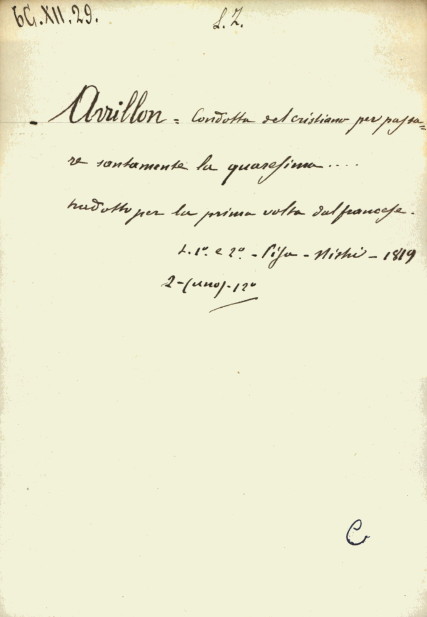 6G.XII.29.
L.Z.
- Avrillon = Condotta del cristiano per passa=
re santamente la quaresima....
tradotto per la prima volta dal francese.
t. 1º. e 2º. - Pisa - Nistri - 1819
2-(uno)-12º
C